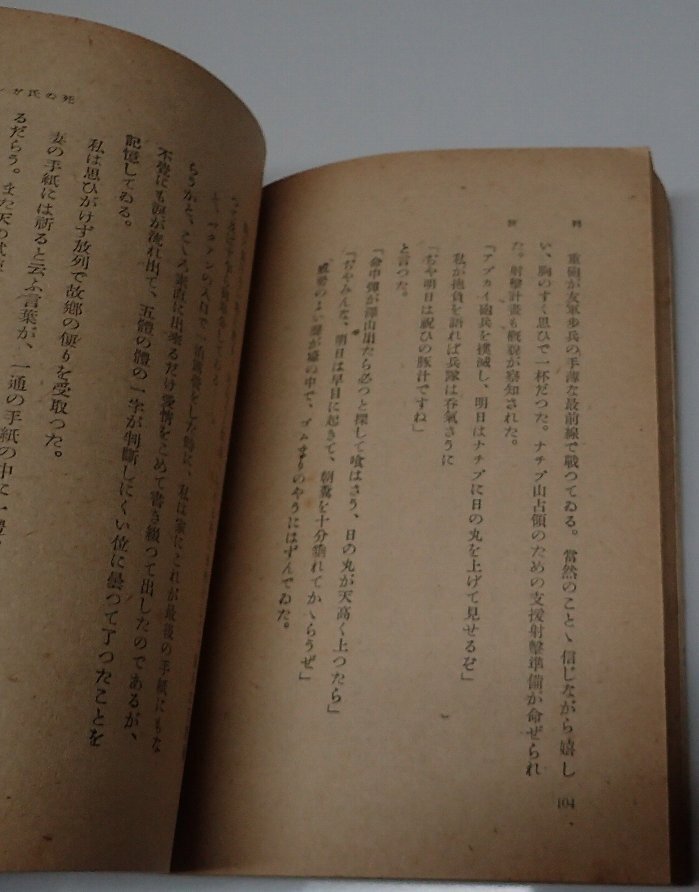 重砲が友軍歩兵の手薄な最前線で戰つてゐる。當然のことゝ信じながら嬉し
い、胸のすく思ひで一杯だつた。ナチブ山占領のための支援射擊準備が命ぜられ
た。射擊計畫も概貌が察知された。
「アブカイ砲兵を撲滅し、明日はナチブに日の丸を上げて見せるぞ」
私が抱負を語れば兵隊は呑氣さうに
「ぢや明日は祝ひの豚汁ですね」
と言つた。
「命中彈が澤山出たら必つと探して喰はさう、日の丸が天高く上つたら」
「ぢやみんな、明日は早目に起きて、朝糞を十分垂れてかゝらうぜ」
威勢のよい聲が壕の中で、ゴムまりのやうにはずんでゐた。
104
氏の死
ちうかと、こゝろ素直に出來るだけ愛情をこめて書き綴つて出したのであるが、
不覺にも淚が流れ出て、五體の體の一字が判斷しにくい位に曇つて了つたことを
記憶してゐる。
私は思ひがけず放列で故鄕の便りを受取つた。
妻の手紙には祈ると云ふ言葉が、一通の手紙の中に一體
るだらう。また天の